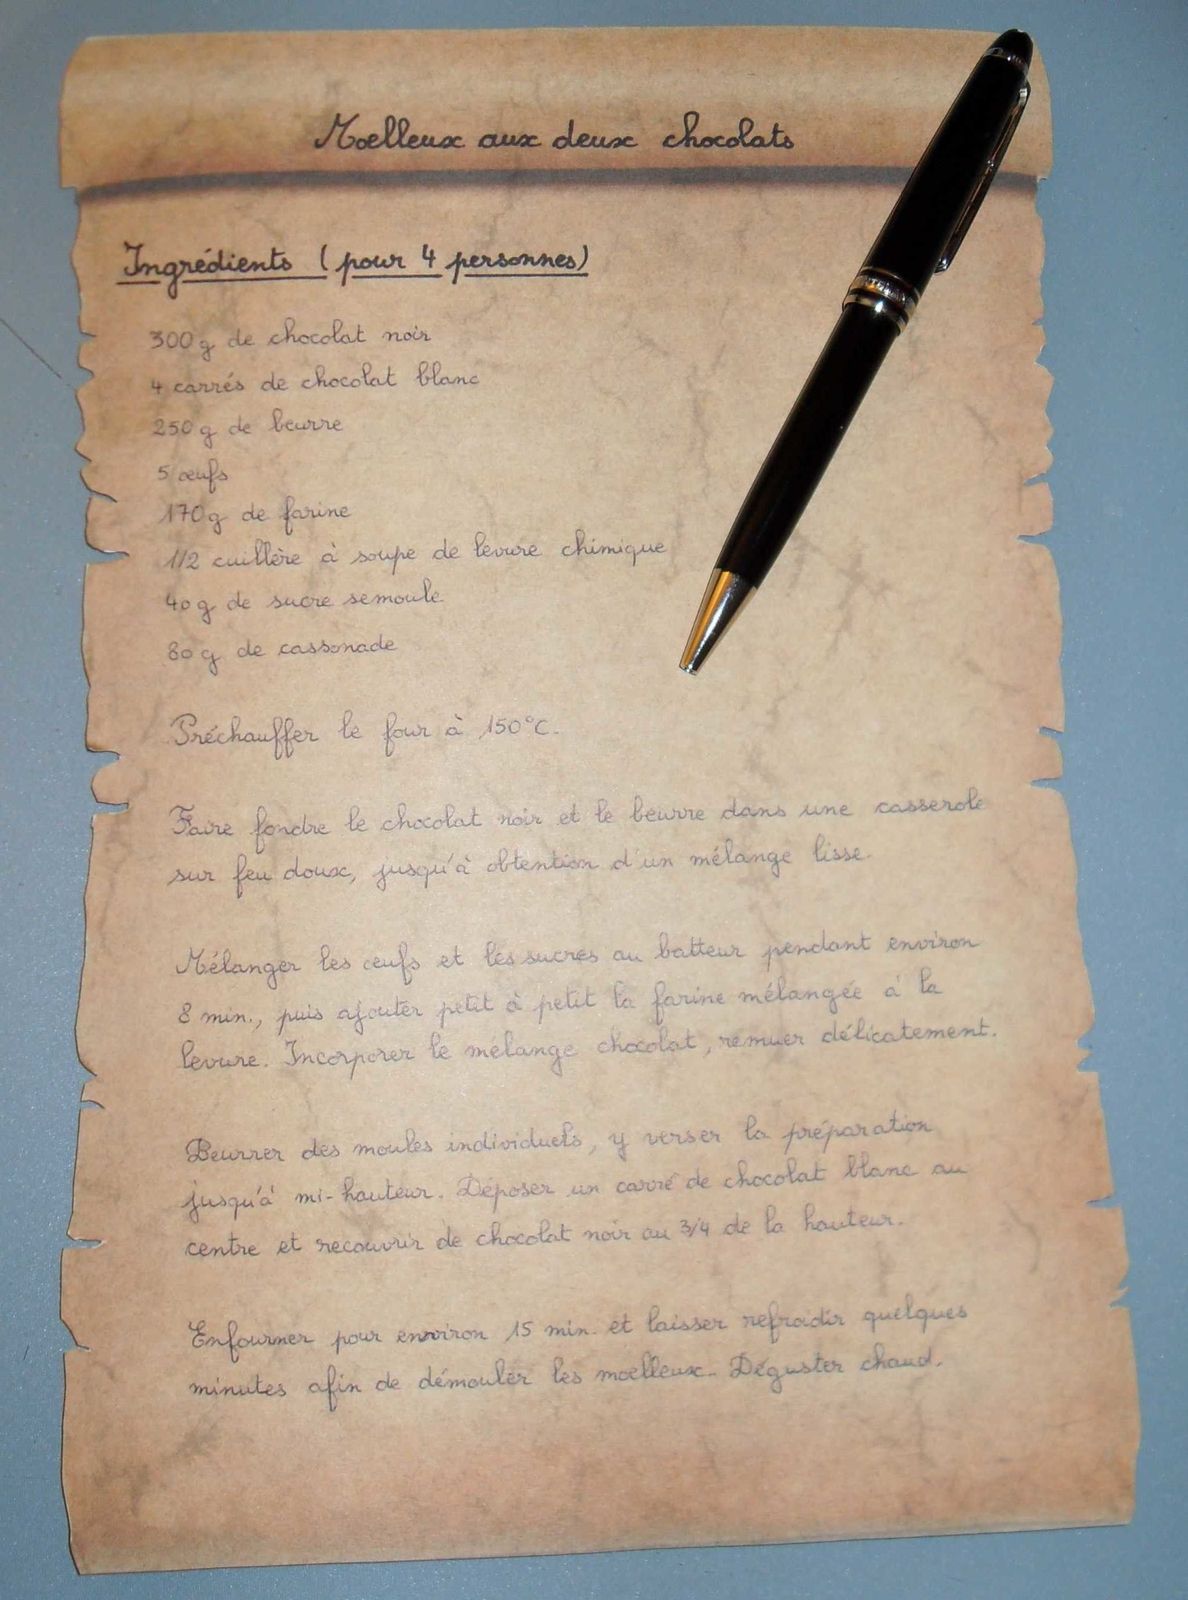 Moelleux aux deux chocolats
Ingrédients (pour 4 personnes)
300g de chocolat noir
4 carrés de chocolat blanc
250g de beurre
5 œufs
170g de farine
1/2 cuillère à soupe de levure chimique
40g de sucre semoule
80g de cassonade
Préchauffer le four à 150°C.
Faire fondre le chocolat noir et le beurre dans une casserole
sur feu doux, jusqu'à obtention d'un mélange lisse.
Mélanger les œufs et les sucres au batteur pendant environ
8 min., puis ajouter petit à petit la farine mélangée à la
levure. Incorporer le mélange chocolat, remuer délicatement.
Beurrer des moules individuels, y verser la préparation
jusqu'à mi-hauteur. Déposer un carré de chocolat blanc au
centre et recouvrir de chocolat noir au 3/4 de la hauteur.
Enfourner pour environ 15 min. et laisser refroidir quelques
minutes afin de démouler les moelleux. Déguster chaud.